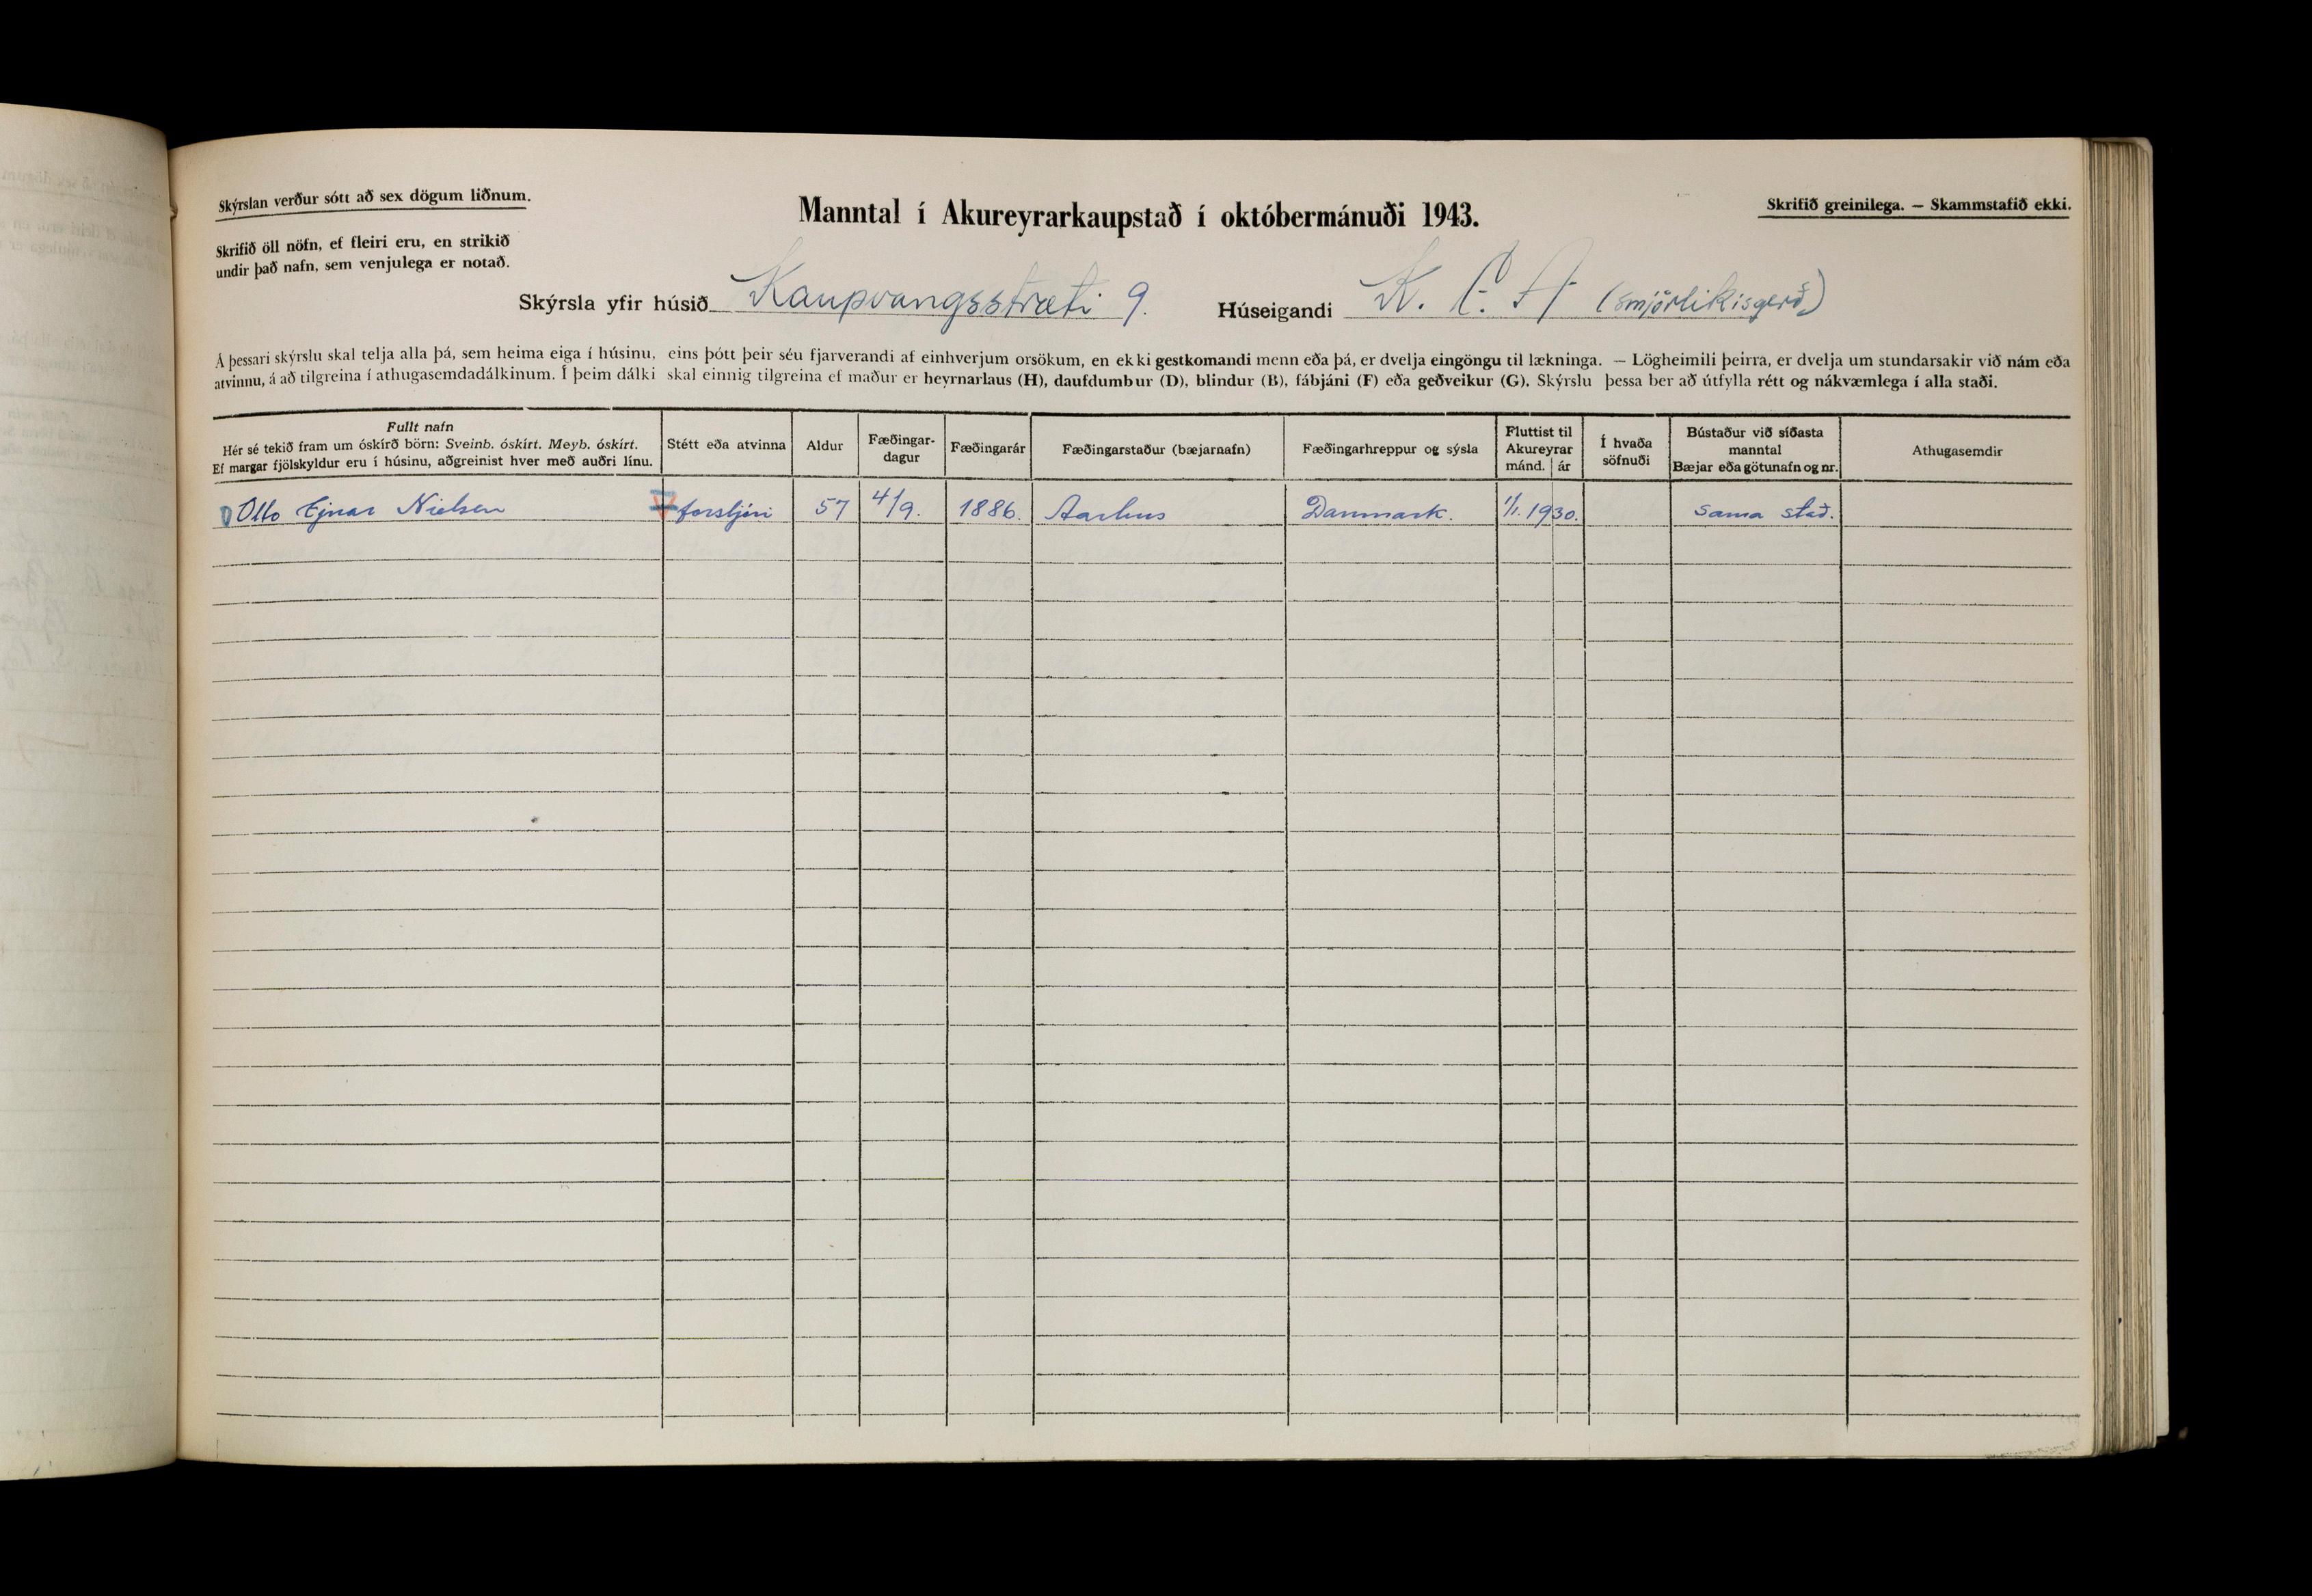 Skýrslan verður sótt að sex dögum liðnum.
Manntal í Akureyrarkaupstað í októbermánuði 1943.
Skrifið greinilega. — Skammstafið ekki.
Skrifið öll nöfn, ef fleiri eru, en strikið
undir það nafn, sem venjulega er notað.
Skýrsla yfir húsið Kaupvangsstræti 9. Húseigandi K. E. A (smjörlikisgerð)
Á þessari skýrslu skal telja alla þá, sem heima eiga í húsinu, eins þótt þeir séu fjarverandi af einhverjum orsökum, en ekki gestkomandi menn eða þá, er dvelja eingöngu til lækninga. — Lögheimili þeirra, er dvelja um stundarsakir við nám eða
atvinnu, á að tilgreina í athugasemdadálkinum. Í þeim dálki skal einnig tilgreina ef maður er heyrnarlaus (H), daufdumbur (D), blindur (B), fábjáni (F) eða geðveikur (G). Skýrslu þessa ber að útfylla rétt og nákvæmlega í alla staði.
Fullt nafn
Hér sé tekið fram um óskírð börn: Sveinb. óskírt. Meyb. óskírt.
Ef margar fjölskyldur eru í húsinu, aðgreinist hver með auðri línu.
Stétt eða atvinna
Aldur
Fæðingar-
dagur
Fæðingarár
Fæðingarstaður (bæjarnafn)
Fæðingarhreppur og sýsla
Fluttist til
Akureyrar
mánd. ár
Í hvaða
söfnuði
Bústaður við síðasta
manntal
Bæjar eða götunafn og nr.
Athugasemdir
Otto Ejnar Nielsen forstjóri 57 4/9. 1886. Aarhus Danmark. 1/1. 1930. sama stað.